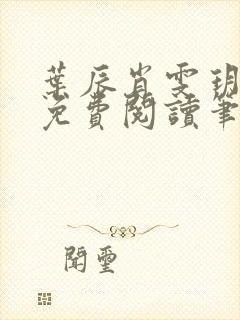 葉辰肖雯玥
免費閱讀筆
聞璽